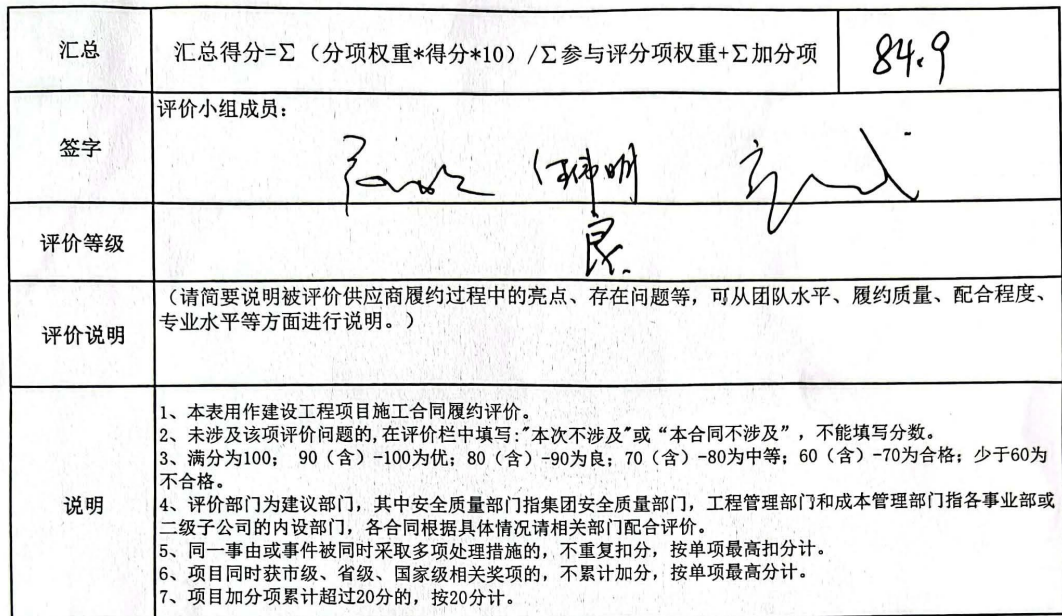 汇总
汇总得分=Σ（分项权重*得分*10）/Σ参与评分项权重+Σ加分项
84.9
签字
评价小组成员：
评价等级
良
评价说明
（请简要说明被评价供应商履约过程中的亮点、存在问题等，可从团队水平、履约质量、配合程度、
专业水平等方面进行说明。）
说明
1、本表用作建设工程项目施工合同履约评价。
2、未涉及该项评价问题的,在评价栏中填写:"本次不涉及"或“本合同不涉及”，不能填写分数。
3、满分为100； 90（含）-100为优；80（含）-90为良；70（含）-80为中等；60（含）-70为合格；少于60为
不合格。
4、评价部门为建议部门，其中安全质量部门指集团安全质量部门，工程管理部门和成本管理部门指各事业部或
二级子公司的内设部门，各合同根据具体情况请相关部门配合评价。
5、同一事由或事件被同时采取多项处理措施的，不重复扣分，按单项最高扣分计。
6、项目同时获市级、省级、国家级相关奖项的，不累计加分，按单项最高分计。
7、项目加分项累计超过20分的，按20分计。